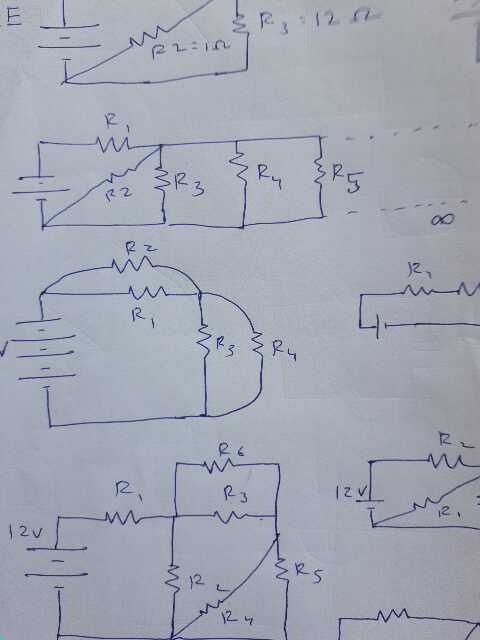 E
R2=1Ω
R3=12Ω
R1
R2
R3
R4
R5
∞
R2
R1
R3
R4
V
R1
R6
R3
R1
12V
R2
R4
R5
R2
12V
R1